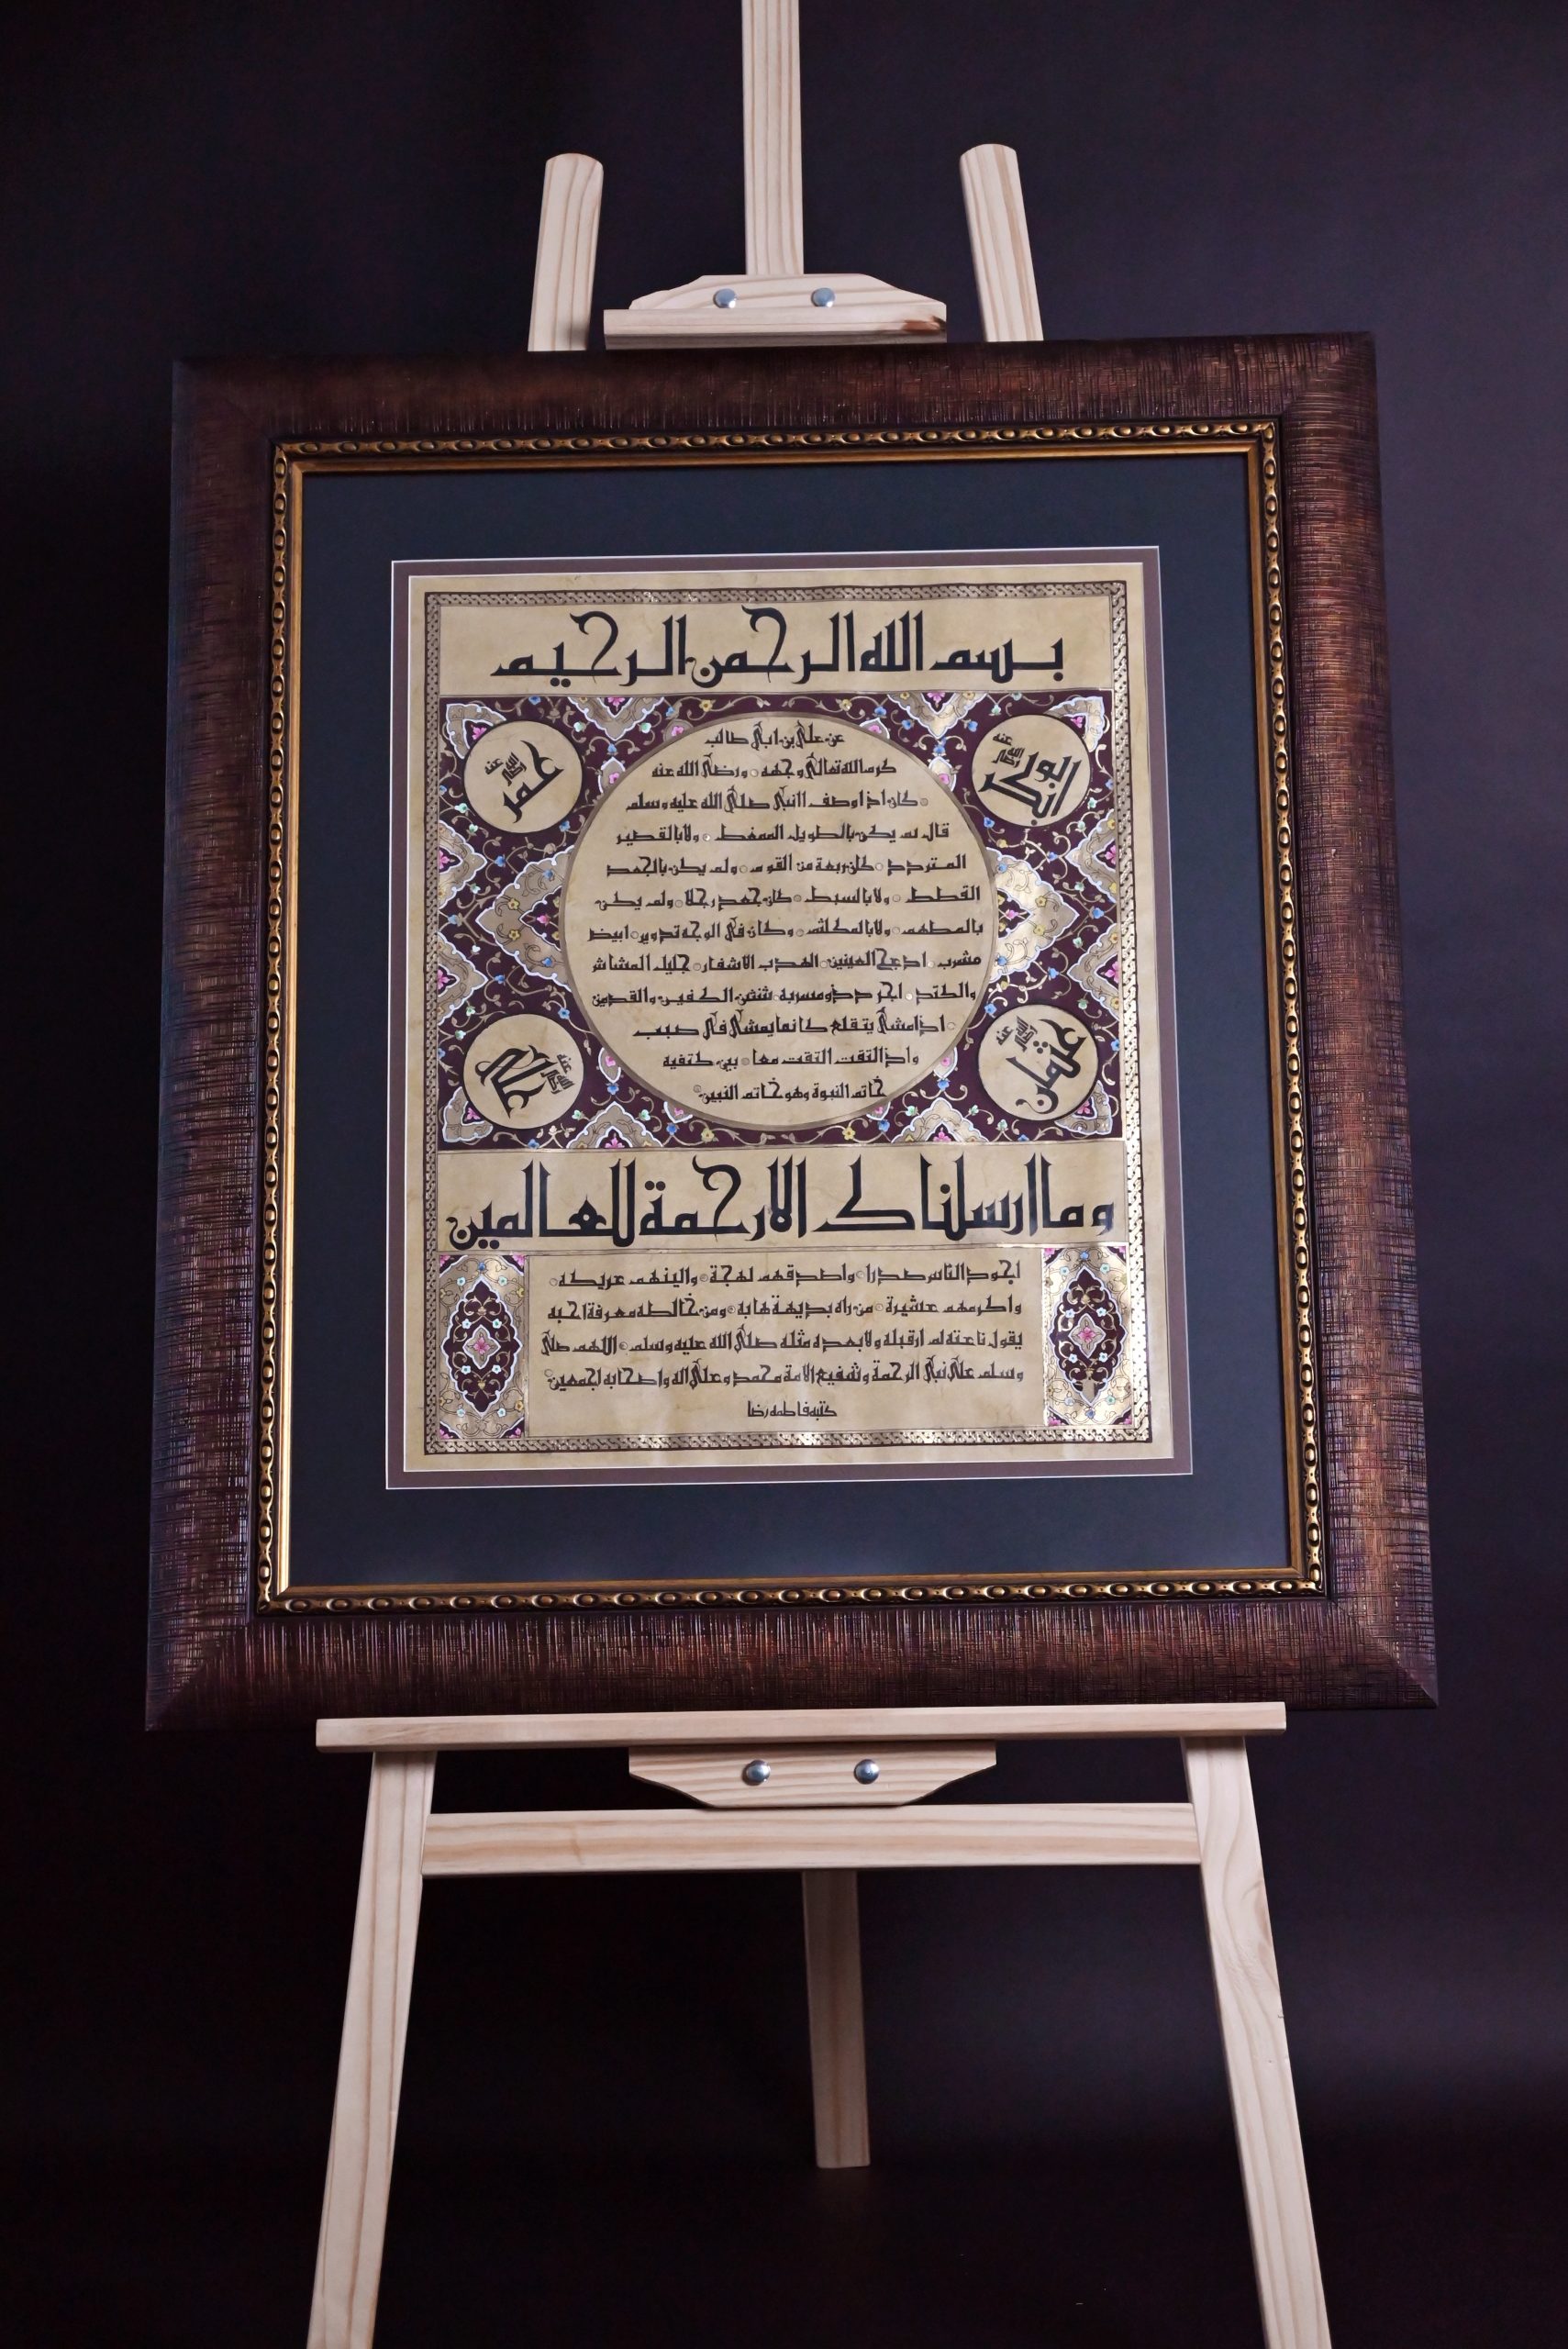 بسم الله الرحمن الرحيم
ابو بكر رضي الله عنه
عمر رضي الله عنه
عن علي بن ابي طالب
كرم الله تعالى وجهه ورضى الله عنه
كان اذا وصف النبي صلى الله عليه وسلم
قال لم يكن بالطويل الممغط ولا بالقصير
المتردد كان ربعة من القوم ولم يكن بالجعد
القطط ولا بالسبط كان جعد رجلا ولم يكن
بالمطهم ولا بالمكلثم وكان في الوجه تدوير ابيض
مشرب ادعج العينين اهدب الاشفار جليل المشاش
والكتد اجرد ذو مسربة شثن الكفين والقدمين
اذا مشى يتقلع كانما يمشى في صبب
واذا التفت التفت معا بين كتفيه
خاتم النبوة وهو خاتم النبين
عثمان رضي الله عنه
علي رضي الله عنه
وما ارسلناك الا رحمة للعالمين
اجود الناس صدرا واصدقهم لهجة والينهم عريكه
واكرمهم عشيرة من راه بديهة هابه ومن خالطه معرفة احبه
يقول ناعته لم ار قبله ولا بعده مثله صلى الله عليه وسلم اللهم صل
وسلم على نبي الرحمة وشفيع الامة محمد وعلى اله واصحابه اجمعين
كتبه فاطمه رضا